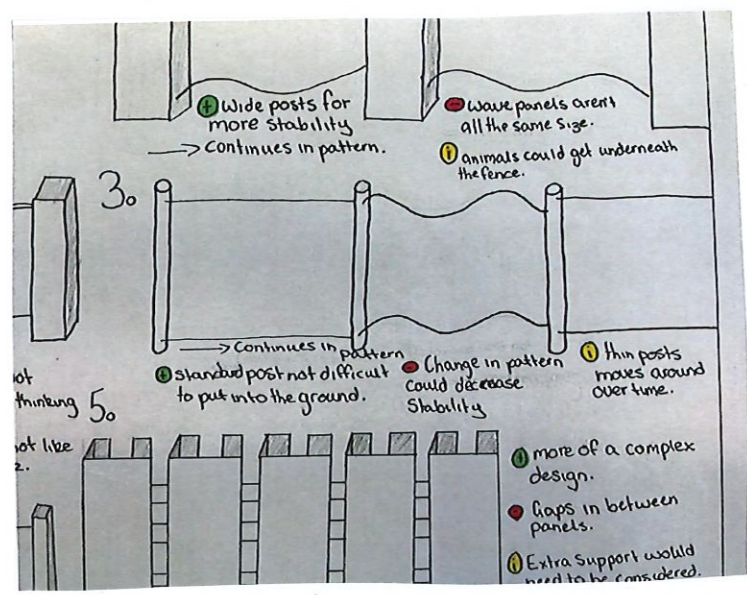 + Wide posts for
more stability
→ Continues in pattern.
- Wave panels aren't
all the same size.
i animals could get underneath
the fence.
3.
→ Continues in pattern
+ standard post not difficult
to put into the ground.
- Change in pattern
could decrease
Stability
i thin posts
moves around
over time.
thinking
not like
5.
+ more of a complex
design.
- Gaps in between
panels.
i Extra Support would
need to be considered.